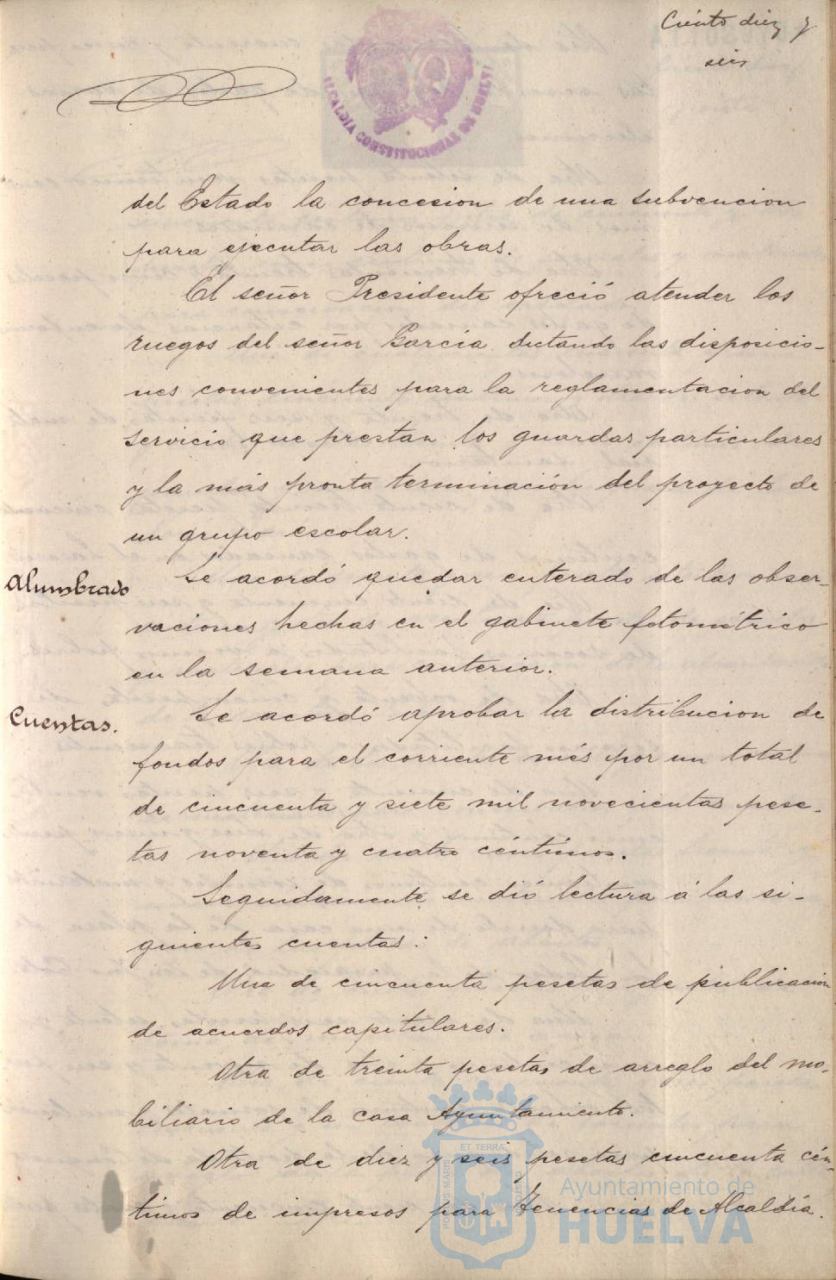 Ciento diez y
seis
ALCALDIA CONSTITUCIONAL DE HUELVA
del Estado la concesion de una subvencion
para ejecutar las obras.
El señor Presidente ofreció atender los
ruegos del señor García dictando las disposicio-
nes convenientes para la reglamentacion del
servicio que prestan los guardas particulares
y la más pronta terminación del proyecto de
un grupo escolar.
Alumbrado
Se acordó quedar enterado de las obser-
vaciones hechas en el gabinete fotométrico
en la semana anterior.
Cuentas.
Se acordó aprobar la distribucion de
fondos para el corriente més por un total
de cincuenta y siete mil novecientas pese-
tas noventa y cuatro céntimos.
Seguidamente se dió lectura á las si-
guientes cuentas:
Una de cincuenta pesetas de publicacion
de acuerdos capitulares.
Otra de treinta pesetas de arreglo del mo-
biliario de la casa Ayuntamiento.
Otra de diez y seis pesetas cincuenta cén-
timos de impresos para Tenencias de Alcaldía.
ET TERRA
Ayuntamiento de
HUELVA